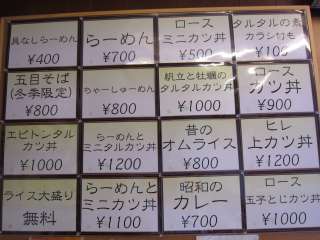 具なしらーめん
¥400
らーめん
¥700
ロース
ミニカツ丼
¥500
タルタルの素
カラシ付も
¥100
五目そば
(冬季限定)
¥800
ちゃーしゅーめん
¥800
帆立と牡蠣の
タルタルカツ丼
¥1000
ロース
カツ丼
¥900
エビトンタル
カツ丼
¥1000
らーめんと
ミニタルカツ丼
¥1200
昔の
オムライス
¥800
ヒレ
上カツ丼
¥1200
ライス大盛り
無料
らーめんと
ミニカツ丼
¥1100
昭和の
カレー
¥700
ロース
玉子とじカツ丼
¥1000